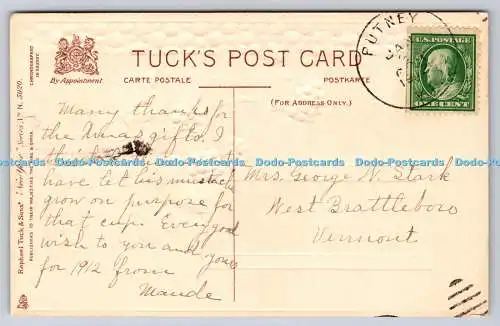 PUTNEY
U.S. POSTAGE
ONE CENT
TUCK'S POST CARD
CARTE POSTALE
POSTKARTE
(FOR ADDRESS ONLY.)
By Appointment.
Raphael Tuck & Sons' "New Year" Series
Many thanks for
the Xmas gifts. I
have let his mustache
grow on purpose for
that cup. Every good
wish to you and yours
for 1912 from
Maude
Mrs. George N. Stark
West Brattleboro
Vermont
Dodo-Postcards Dodo-Postcards Dodo-Postcards Dodo-Postcards Dodo-Postcards Dodo-Postcards